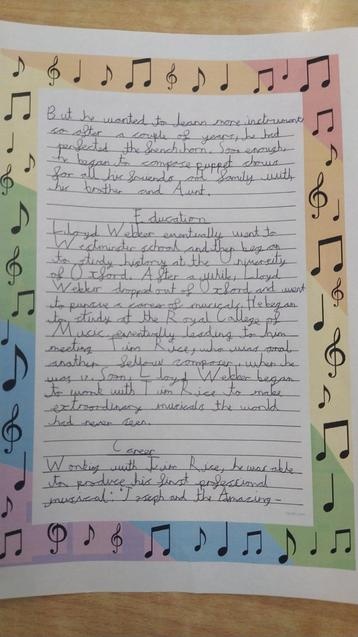 But he wanted to learn more instruments
so after a couple of years, he had
perfected the french horn. Soon enough,
he began to compose puppet shows
for all his friends and family with
his brother and Aunt.
Education
Lloyd Webber eventually went to
Westminster school and then began
to study history at the University
of Oxford. After a while, Lloyd
Webber dropped out of Oxford and went
to pursue a career of musicals. He began
to study at the Royal College of
Music, eventually leading to him
meeting Tim Rice, who was
another fellow composer, when he
was 17. Soon, Lloyd Webber began
to work with Tim Rice to make
extraordinary musicals the world
had never seen.
Career
Working with Tim Rice, he was able
to produce his first professional
musical: Joseph and the Amazing-